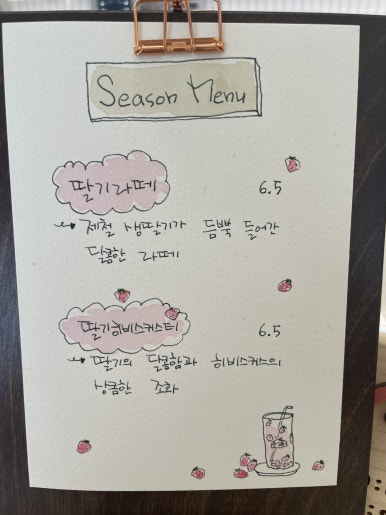 Season Menu
딸기라떼 6.5
제철 생딸기가 듬뿍 들어간
달콤한 라떼
딸기히비스커스티 6.5
딸기의 달콤함과 히비스커스의
상콤한 조화